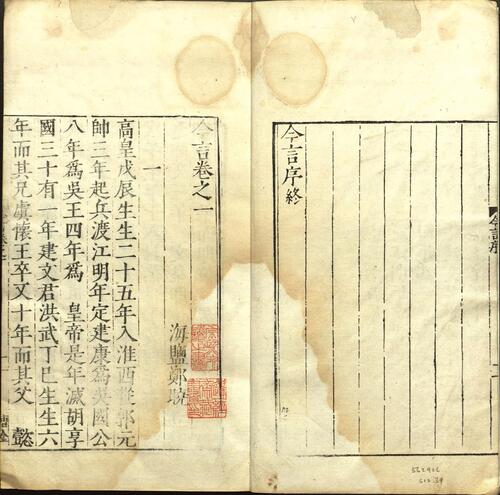 今言序終
今言序
今言卷之一
海鹽鄭曉
一
高皇戊辰生生二十五年入淮西從郭元
帥三年起兵渡江明年定建康為吳國公
八年為吳王四年為 皇帝是年滅胡享
國三十有一年建文君洪武丁巳生生六
年而其兄虞懷王卒又十年而其父 懿